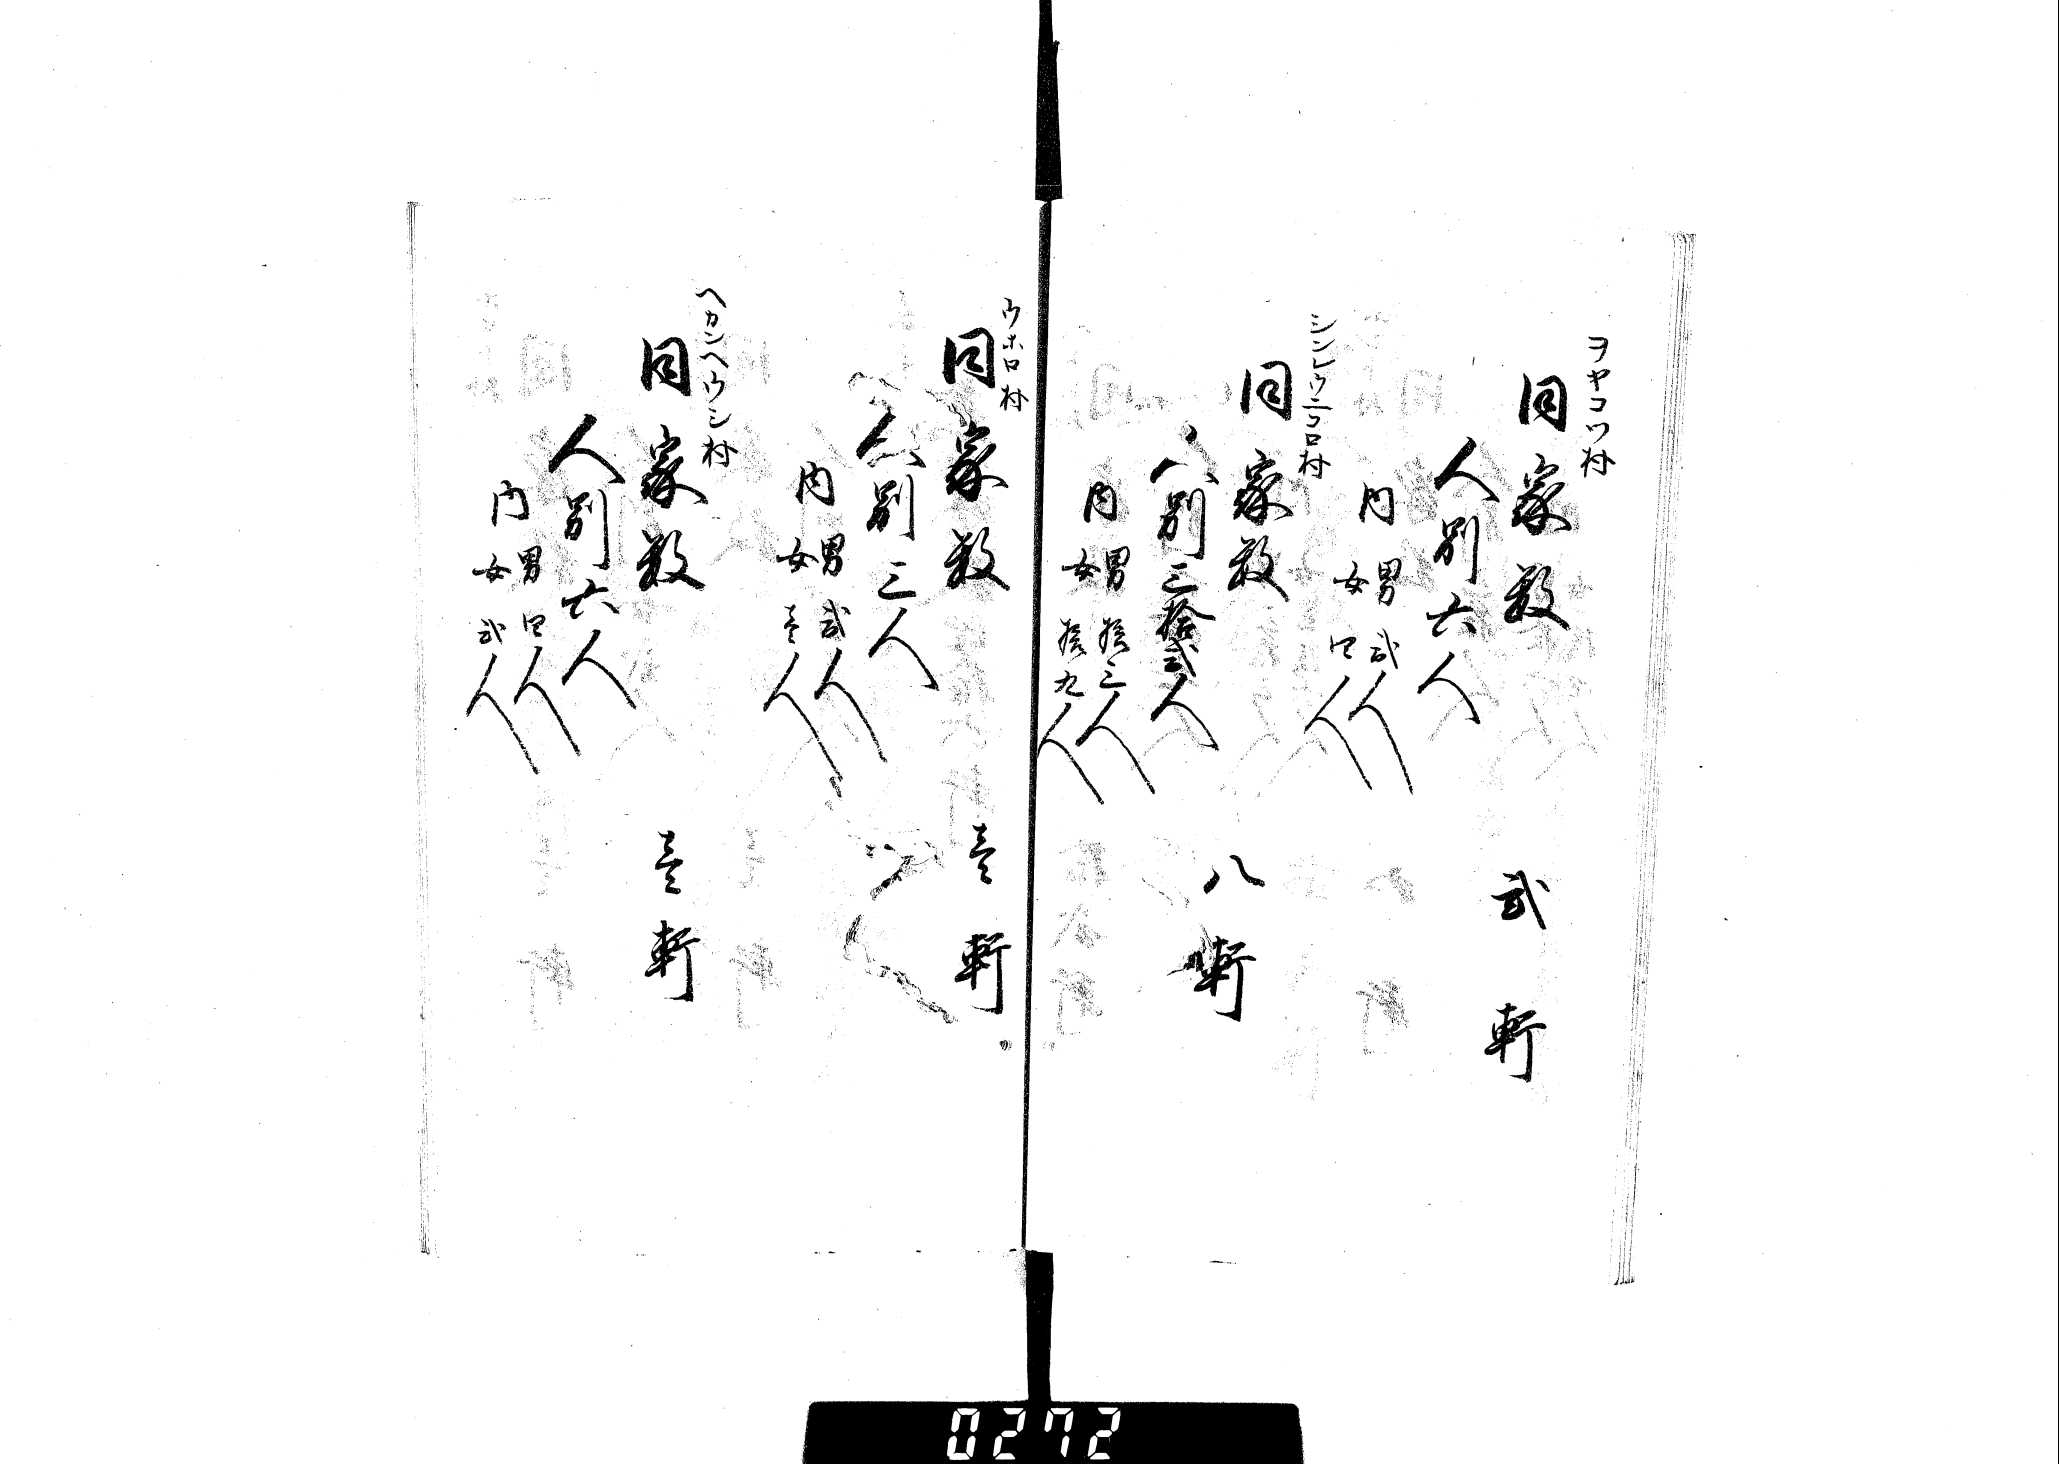 ヲヤコツ村
同家数 弐軒
人別六人
内 男 弐人
女 四人
シンレウニコロ村
同家数 八軒
人別三拾弐人
内 男 拾三人
女 拾九人
ウホロ村
同家数 壱軒
人別三人
内 男 弐人
女 壱人
ヘカンヘウシ村
同家数 壱軒
人別六人
内 男 四人
女 弐人
0272